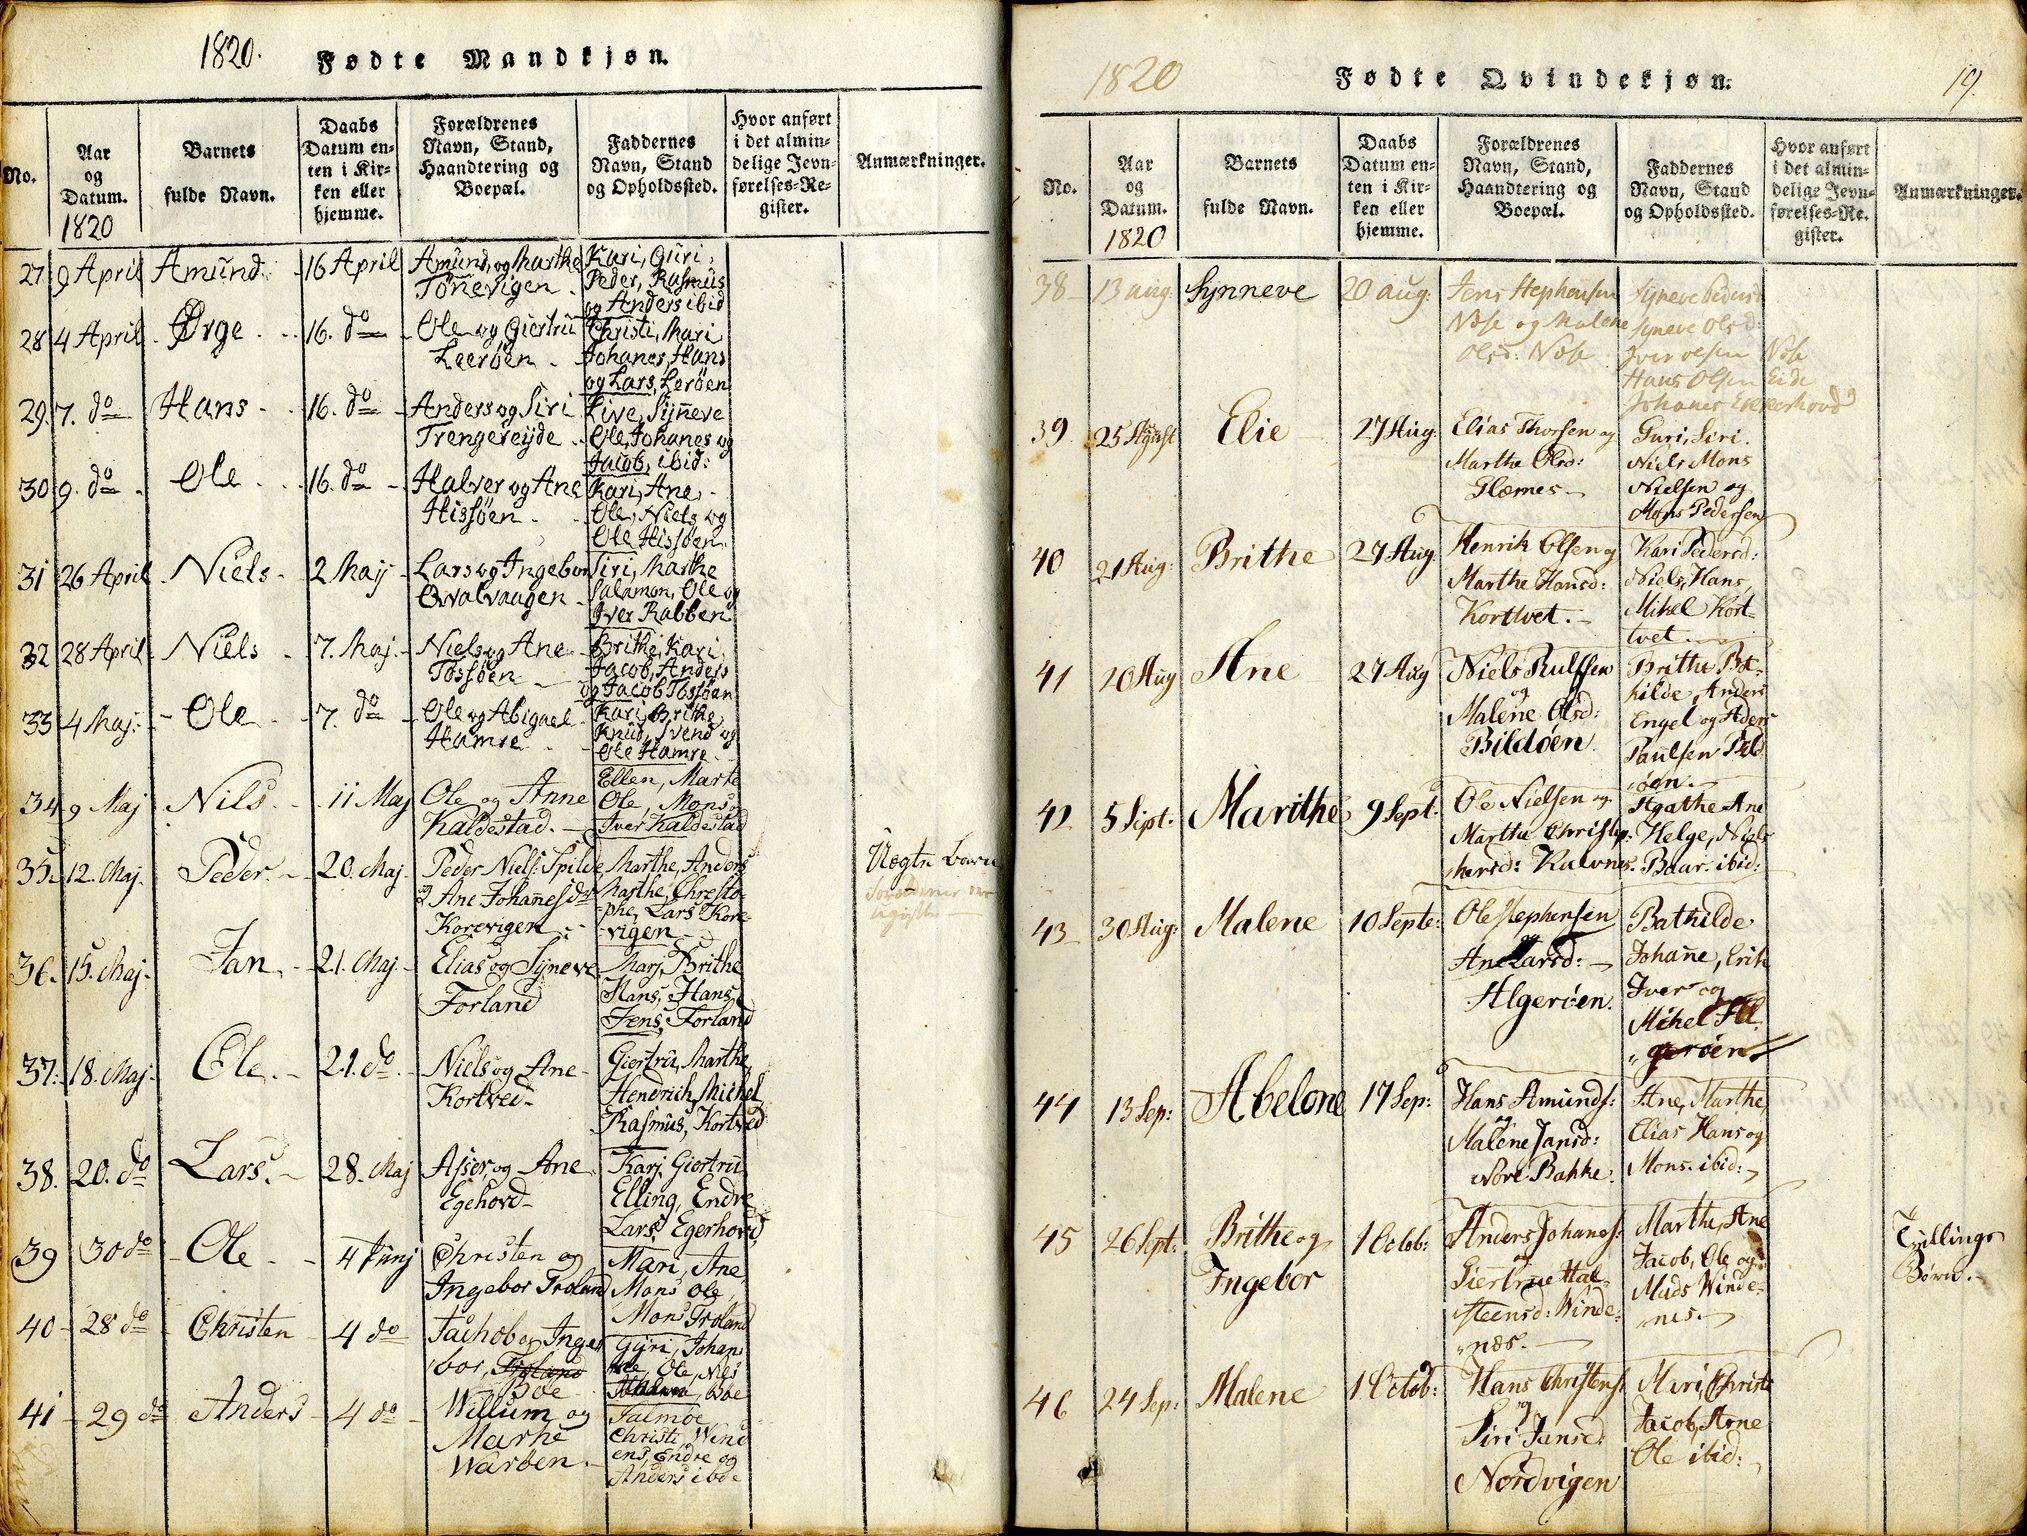 1820. Fødte Mandkjøn.
No.
Aar
og
Datum.
1820
Barnets
fulde Navn.
Daabs
Datum en-
ten i Kir-
ken eller
hjemme.
Forældrenes
Navn, Stand,
Haandtering og
Boepæl.
Faddernes
Navn, Stand
og Opholdssted.
Hvor anført
i det almin-
delige Jevn-
førelses-Re-
gister.
Anmærkninger.
27 9 April Amund. 16 April
Amund og Marthe
Tönevigen
Kari, Guri,
Peder, Rasmus
og Anders ibid
28 4 April Ørge 16. do
Ole og Giertru
Leeröen
Christi, Mari
Johanes, Hans
og Lars, Leröen
29. 7. do Hans 16. do
Anders og Siri
Trengereijde
Live, Sijneve
Ole, Johanes og
Jacob, ibid:
30 9. do Ole 16. do
Halver og Ane
Hissöen
Kari, Ane,
Ole, Niels og
Ole Hissöen
31 26 April Niels 2 Maij
Lars og Ingebor
Qvalvaagen
Siri, Marthe
Salamon, Ole og
Iver Rabben
32 28 April Niels 7. Maj.
Niels og Ane
Tössöen
Brithe, Kari,
Jacob, Anders
og Jacob Tössöen
33 4 Maj: Ole 7. do
Ole og Abigael
Hamre
Kari, Brithe,
Knud, Svend og
Ole Hamre
34 9 Maj Nils 11 Maj
Ole og Anne
Kaldestad.
Ellen, Marte
Ole, Mons og
Iver Kaldestad
35. 12. Maj. Peder. 20. Maj.
Peder Niels: Spilde
og Ane Johanesdr
Korevigen
Marthe, Anders
Marthe, Christo-
-phe, Lars Kore-
-vigen
Uægte barn
36. 15. Maj. Jan 21. Maj
Elias og Sijneve
Forland
Marj, Brithe
Hans, Hans
Jens, Forland
37: 18. Maj. Ole. 21. do.
Niels og Ane
Kortved
Giertru, Marthe,
Hendrich, Michel,
Rasmus, Kortved
38. 20. do Lars. 28. Maj
Asser, og Ane
Egehovd
Karj, Giertru
Elling, Endre
Lars, Egerhovd,
39 30 do Ole 4 Junj
Christen og
Ingebor Troland
Mari, Ane,
Mons Ole,
Mons Troland
40 28 do Christen 4 do
Jachob og Inge
bor, Troland
Böe
Gijri, Johan
Ole, Nils
Böe
41 29 do Anders 4 do
Willum og
Marhe
Waröen
Salmoe
Christi, Wind
ens, Endre og
Anders ibd
1820 Fødte Qvindekjøn. 19.
No.
Aar
og
Datum.
1820
Barnets
fulde Navn.
Daabs
Datum en-
ten i Kir-
ken eller
hjemme.
Forældrenes
Navn, Stand,
Haandtering og
Boepæl.
Faddernes
Navn, Stand
og Opholdssted.
Hvor anført
i det almin-
delige Jevn-
førelses-Re-
gister.
Anmærkninger.
38 13 aug: Synneve 20 aug:
Jens Stephensen
Nöse og Malene
Olsd: Nöse
Syneve Olsd:
Iver Olsen Nöse
Hans Olsen Eide
Johanes Ekkerhovd
39. 25 August Elie 27 Aug:
Elias Thorsen og
Marthe Olsd:
Flæsnes
Guri, Siri.
Niels Mons
Nielsen og
Mons Pedersen
40 21 Aug: Brithe 27 Aug:
Henrik Olsen og
Marthe Hansd:
Kortvet.
Kari Pedersd:
Niels, Hans,
Mikel Kort-
tvet
41 20 Aug Ane 27 Aug
Niels Rulffsen
og
Malene Olsd:
Bildöen
Brithe Ba-
hilde, Anders
Engel og Aders
Paulsen Bild
"öen.
42 5 Sept: Marithe 9 Sept:
Ole Nielsen og
Marthe Christop:
hersd: Kalvnes.
Agathe Ane
Helge, Niels
Baar. ibid:
43 30 Aug: Malene 10 Septe:
Ole Stephensen
og
Ane Larsd:
Algeröen.
Bathilde
Johane, Erik
Iver og
Mikel Al
"geröen
44 13 Sep: Abelone 17 Sep:
Hans Amunds:
og
Malene Jansd:
Nore Bakke.
Ane, Marthe,
Elias Hans og
Mons. ibid:
45 26 Sept: Brithe og
Ingebor
1 Octob:
Anders Johanes:
og
Giertrue Hal-
steensd: Winde-
"næs.
Marthe, Ane
Jacob, Ole og
Mads Winde-
"nes.
Tvillinge
Börn.
46 24 Sep: Malene 1. Octob:
Hans Christens:
og
Siri Jansd:
Nordvigen
Miri, Christi
Jacob, Arne
Ole ibid: